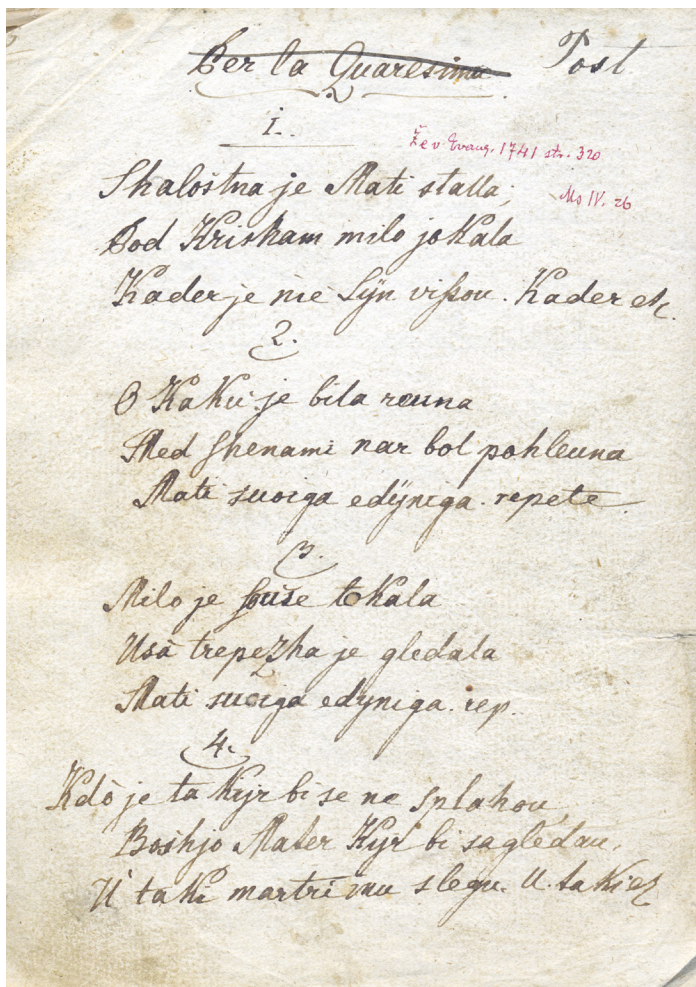 Per la Quaresima Post
1.
Že v Evang. 1741 str. 320
Shalostna je Mati stalla,
Mo IV. 26
Pod Kriskam milo jokala
Kader je nie Syn vissou. Kader etc.
2.
O Kaku je bila reuna
Med shenami nar bol pohleuna
Mati suoiga edÿniga. repete
3.
Milo je souse tokala
Usa trepezha je gledala
Mati suoiga edyniga. rep.
4.
Kdò je ta Kyr bi se ne splahou,
Boshjo Mater Kyr bi sagledau,
U taki martri mu slegu. U. taki ez